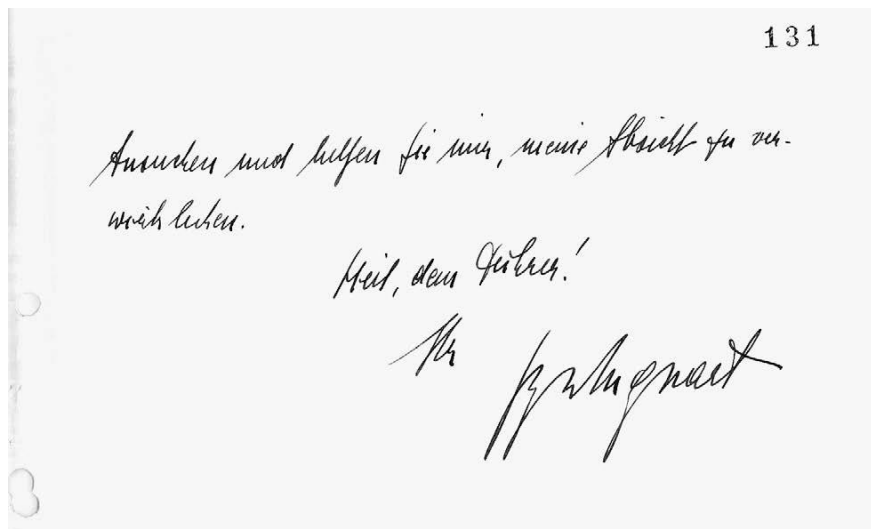 131
Ansuchen und helfen Sie mir, meine Absicht zu ver-
wirklichen.
Heil, dem Führer!
Ihr